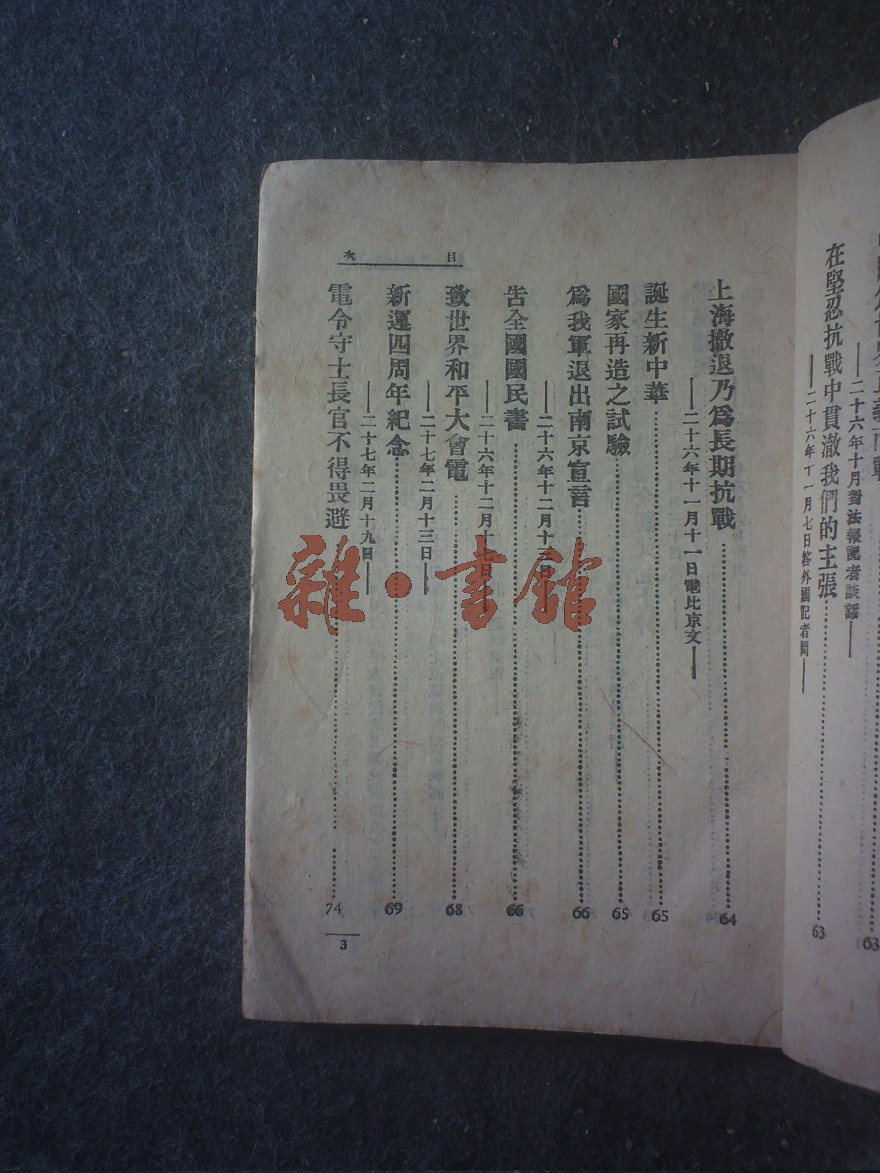 63
——二十六年十月對法報記者談話——
在堅忍抗戰中貫澈我們的主張……63
——二十六年十一月七日答外國記者問——
目次
上海撤退乃爲長期抗戰……64
——二十六年十一月十一日電比京文——
誕生新中華……65
國家再造之試驗……65
爲我軍退出南京宣言……66
——二十六年十二月十三日
告全國國民書……66
——二十六年十二月十七日
致世界和平大會電……68
——二十七年二月十三日——
新運四周年紀念……69
——二十七年二月十九日——
電令守士長官不得畏避……74
3
雜·書館